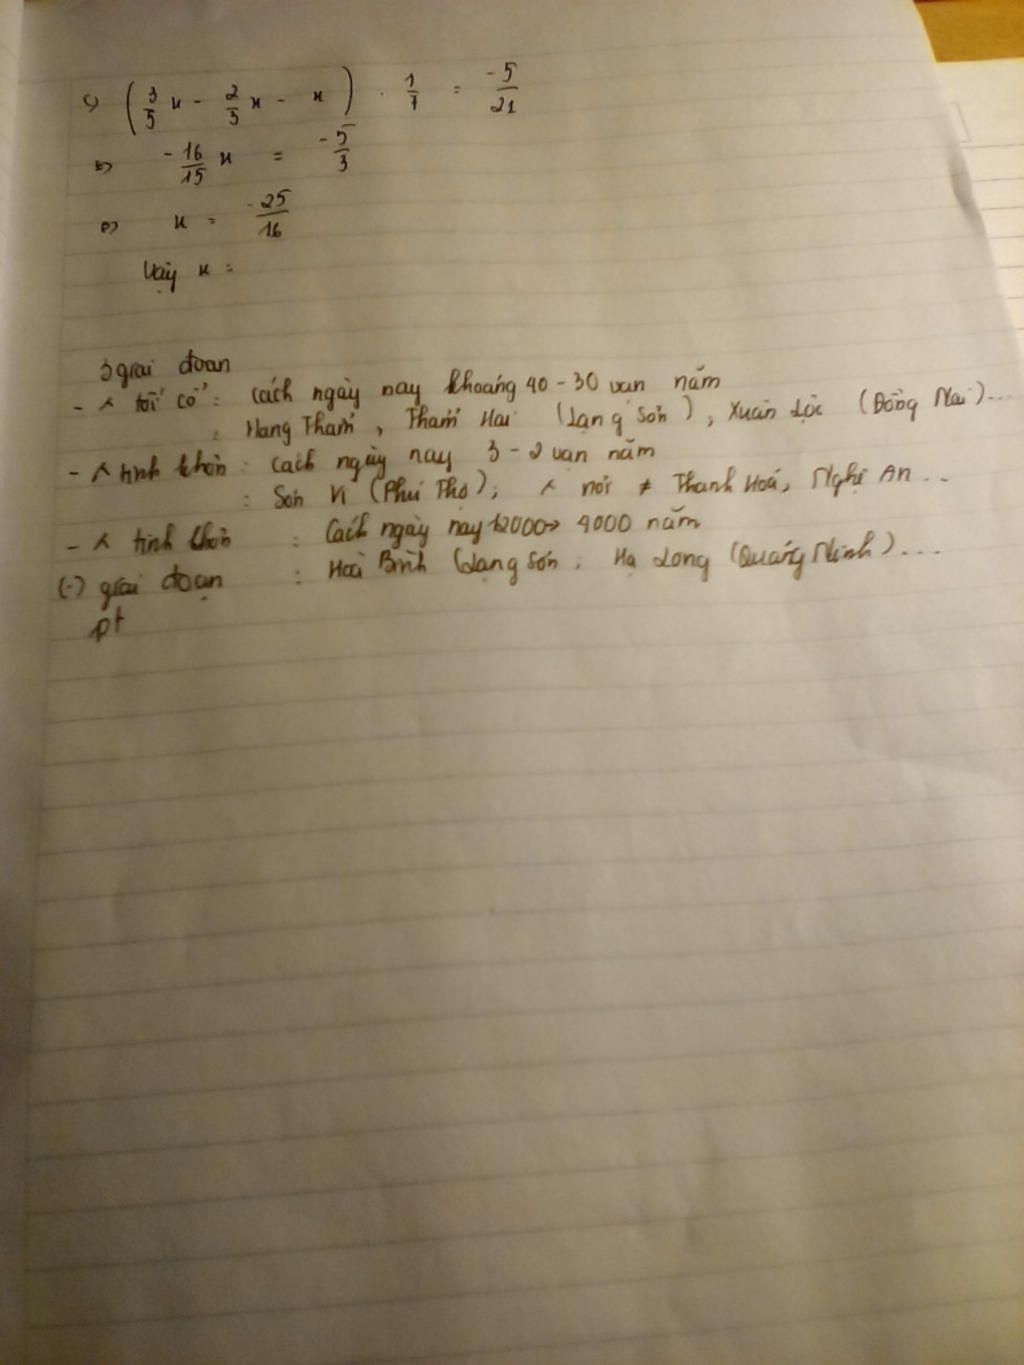 c) (3/5 x - 2/3 x - x) . 1/7 = -5/21
=> -16/15 x = -5/3
=> x = -25/16
Vậy x =
3 giai đoạn
- tối cổ : cách ngày nay khoảng 40 - 30 vạn năm
: Hang Thẩm , Thẩm Hai (Lạng Sơn) , Xuân Lộc (Đồng Nai)...
- tinh khôn : cách ngày nay 3 - 2 vạn năm
: Sơn Vi (Phú Thọ), nơi ≠ Thanh Hoá, Nghệ An ...
- tinh khôn : Cách ngày nay 12000 -> 4000 năm
(-) giai đoạn : Hoà Bình (Lạng Sơn , Hạ Long (Quảng Ninh) ...
pt